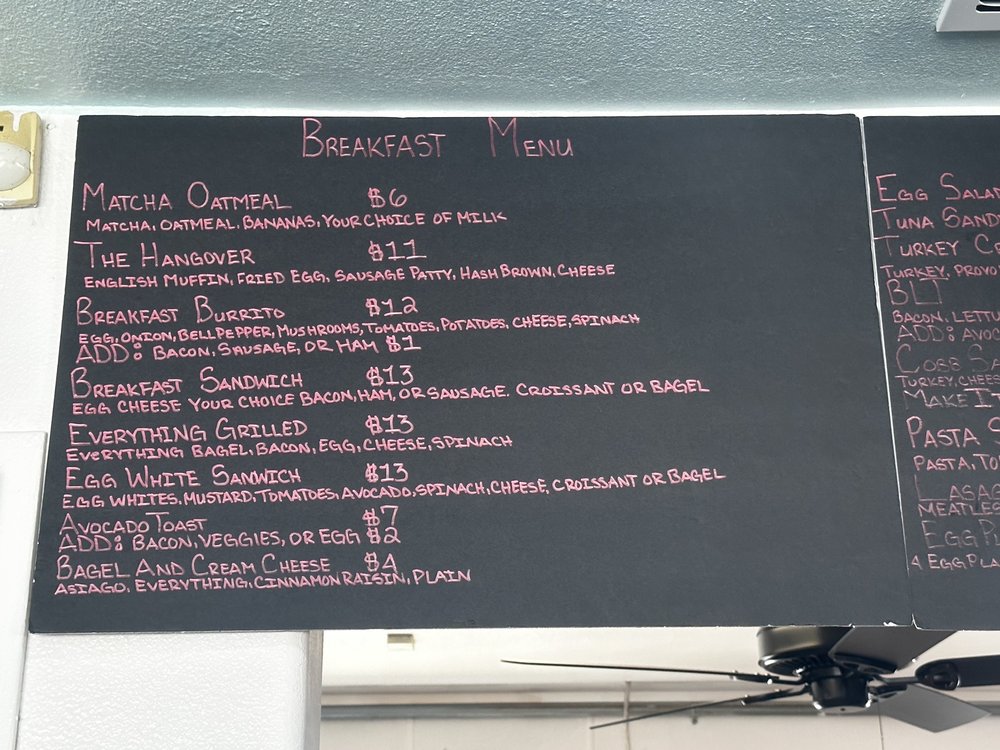 BREAKFAST MENU
MATCHA OATMEAL $6
MATCHA, OATMEAL, BANANAS, YOUR CHOICE OF MILK
THE HANGOVER $11
ENGLISH MUFFIN, FRIED EGG, SAUSAGE PATTY, HASH BROWN, CHEESE
BREAKFAST BURRITO $12
EGG, ONION, BELL PEPPER, MUSHROOMS, TOMATOES, POTATOES, CHEESE, SPINACH
ADD: BACON, SAUSAGE, OR HAM $1
BREAKFAST SANDWICH $13
EGG CHEESE YOUR CHOICE BACON, HAM, OR SAUSAGE. CROISSANT OR BAGEL
EVERYTHING GRILLED $13
EVERYTHING BAGEL, BACON, EGG, CHEESE, SPINACH
EGG WHITE SANWICH $13
EGG WHITES, MUSTARD, TOMATOES, AVOCADO, SPINACH, CHEESE, CROISSANT OR BAGEL
AVOCADO TOAST $7
ADD: BACON, VEGGIES, OR EGG $2
BAGEL AND CREAM CHEESE $4
ASIAGO, EVERYTHING, CINNAMON RAISIN, PLAIN
EGG
TUNA
TURKEY
TURKEY,
BLT
BACON,
ADD:
COBB
TURKEY,
MAKE
PASTA
PASTA,
EGG
4 EGG